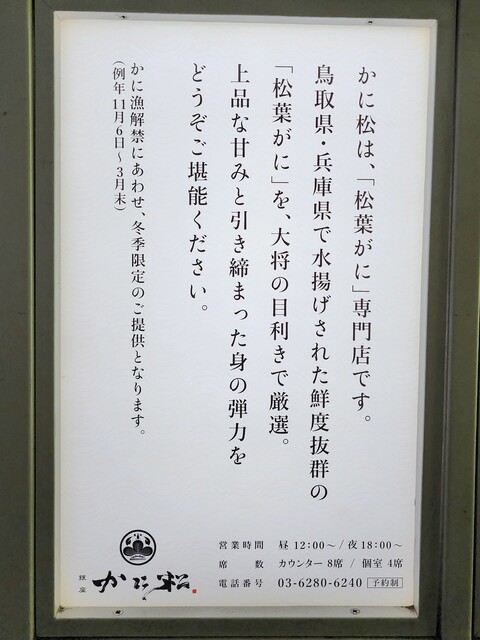 かに松は、「松葉がに」専門店です。
鳥取県・兵庫県で水揚げされた鮮度抜群の
「松葉がに」を、大将の目利きで厳選。
上品な甘みと引き締まった身の弾力を
どうぞご堪能ください。
かに漁解禁にあわせ、冬季限定のご提供となります。
(例年11月6日～3月末)
営業時間 昼 12:00～ / 夜 18:00～
席数 カウンター 8席 / 個室 4席
電話番号 03-6280-6240 予約制
銀座 かに松